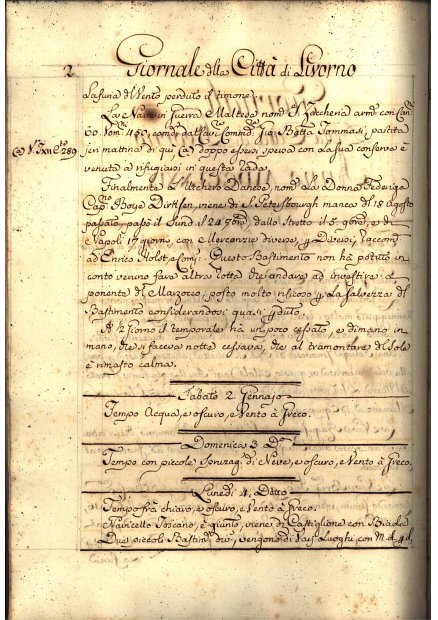 2
Giornale della Città di Livorno
la furia del Vento perduto il timone.
La Nave in Guerra Maltesa nom: S. Zaccheria arm: con Can:
60. Uom: 450, com: dal Cav: Comm: Botta Sommasi, partita
ieri mattina di qui doppo essersi spersa con la sua conserva è
venuta a rifugiarsi in questa rada.
Finalmente Danese, nom: La Donna Federiga
Cap: Boye Dirksen, viene di S. Petersbourgh manca di 18 Agosto
passato, passò il Sund il 24 7bre, dallo Stretto il 5. gore, e di
Napoli 17 giorni, con Mercanzie diverse, p. Diversi, raccom:
ad Enrico Holst, e Comp: Questo Bastimento non hà potuto in
conto veruno fare altra lotta che andare ad investire al
ponente del Marzocco, posto molto risicoso p. la salvezza del
Bastimento considerandosi quasi p.duto.
A 1/2 giorno il temporale hà un poco cessato, e di mano in
mano, che si faceva notte cessava, che al tramontare del Sole
è rimasto calma.
Sabato 2. Gennajo
Tempo Acqua, e oscuro, e Vento à Greco.
Domenica 3. D.o
Tempo con piccole Spruzag: di Neve, e oscuro, e Vento à Greco.
Lunedì 4. Detto
Tempo frà chiaro, e oscuro, e Vento à Greco.
Navicello Toscano, è giunto, viene di Castiglione con Biada
Due piccoli Bastim: div:, vengono di varj Luoghi con M. d. p. d.